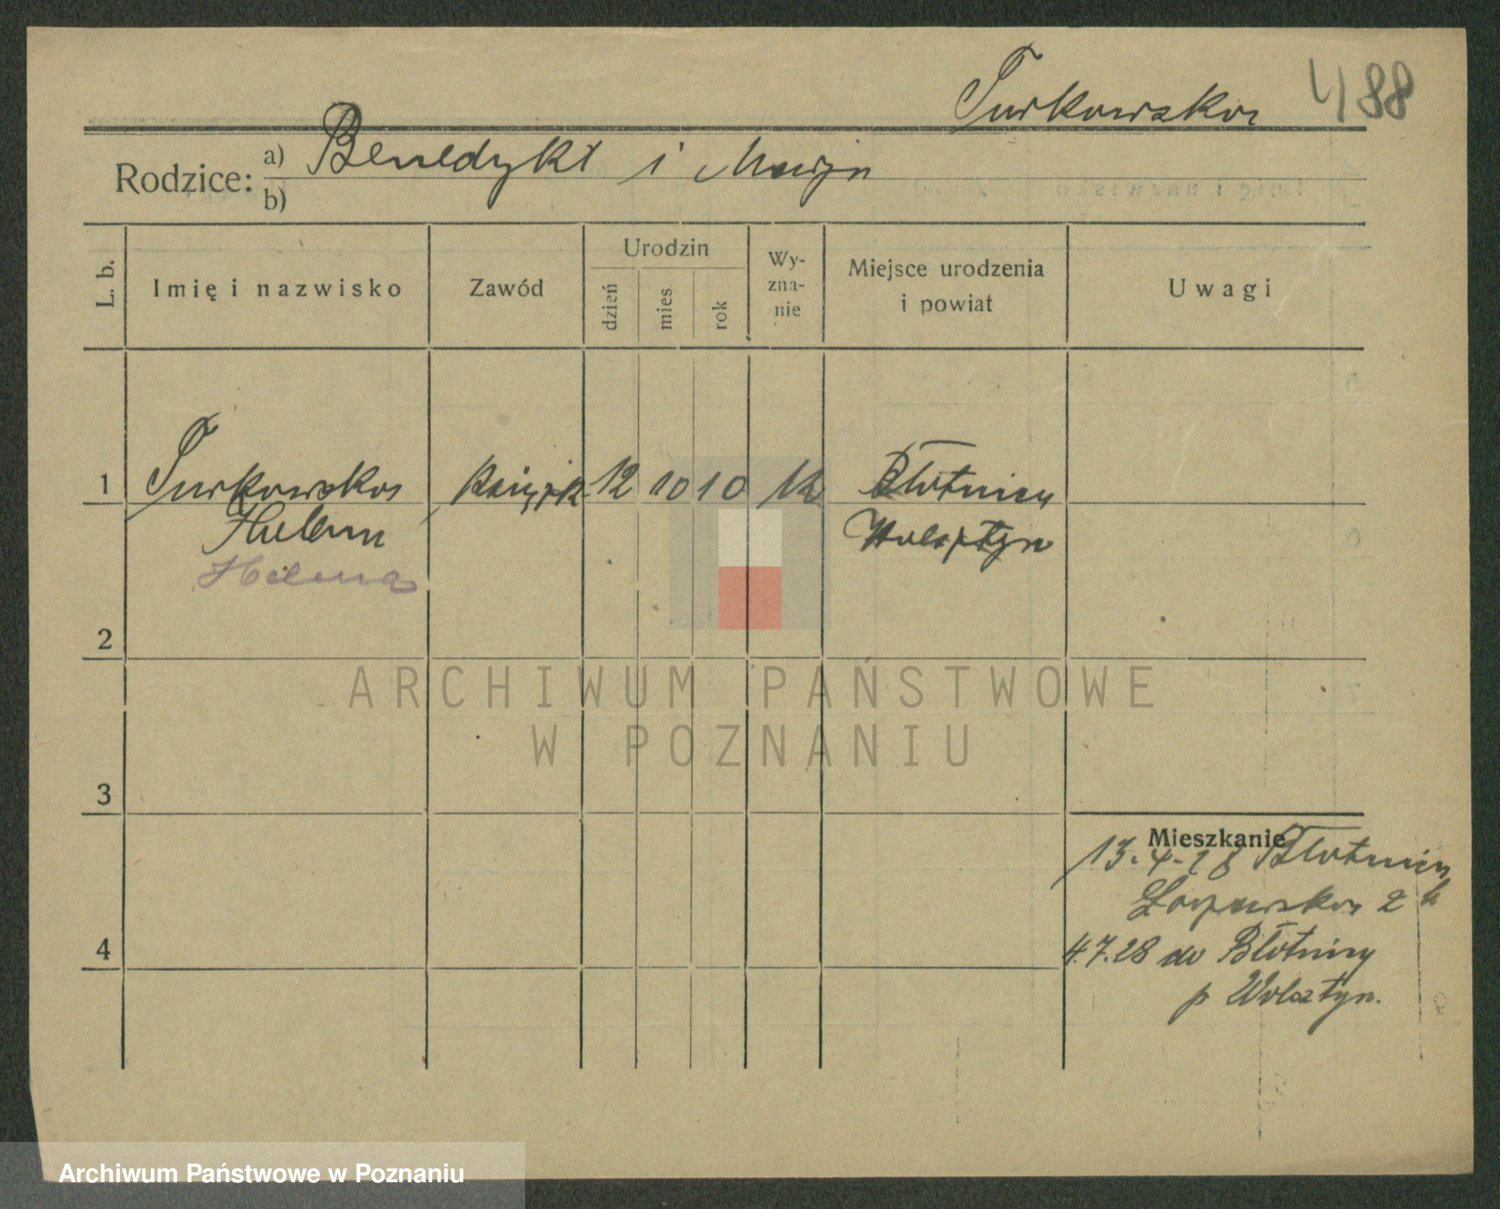 Turkowska 488
Rodzice: a) Benedykt i Marja
b)
L. b.
Imię i nazwisko
Zawód
Urodzin
dzień
mies
rok
Wy-
zna-
nie
Miejsce urodzenia
i powiat
Uwagi
1 Turkowska 12 10 10 k Błotnicy
Helena Wolsztyn
Helena
2
3
4
Mieszkanie
13.4.28 Błotnicy
2
4.7.28 do Błotnicy
p Wolsztyn.
ARCHIWUM PAŃSTWOWE
W POZNANIU
Archiwum Państwowe w Poznaniu